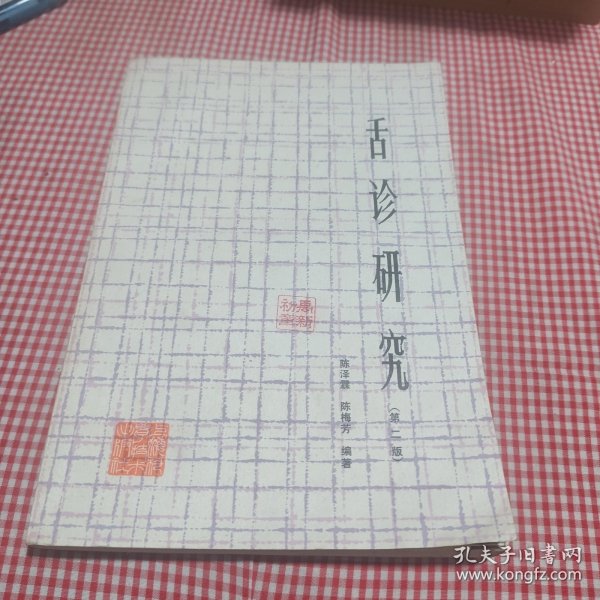 舌诊研究
(第二版)
陈泽霖 陈梅芳 编著
孔夫子旧书网
www.kongfz.com